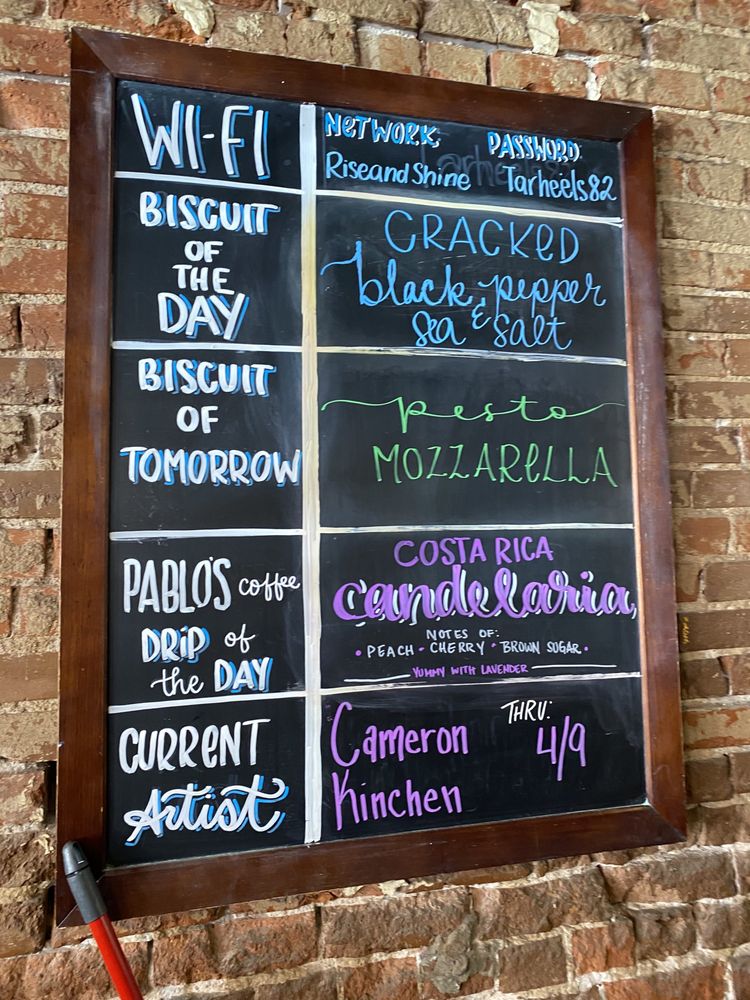 WI-FI
NETWORK PASSWORD
RiseandShine Tarheels82
BISCUIT
OF
THE
DAY
CRACKED
black pepper
& sea salt
BISCUIT
OF
TOMORROW
pesto
MOZZARELLA
PABLO'S coffee
DRIP of
the DAY
COSTA RICA
candelaria
NOTES OF:
• PEACH • CHERRY • BROWN SUGAR •
YUMMY WITH LAVENDER
CURRENT
Artist
Cameron
Kinchen
THRU:
4/9